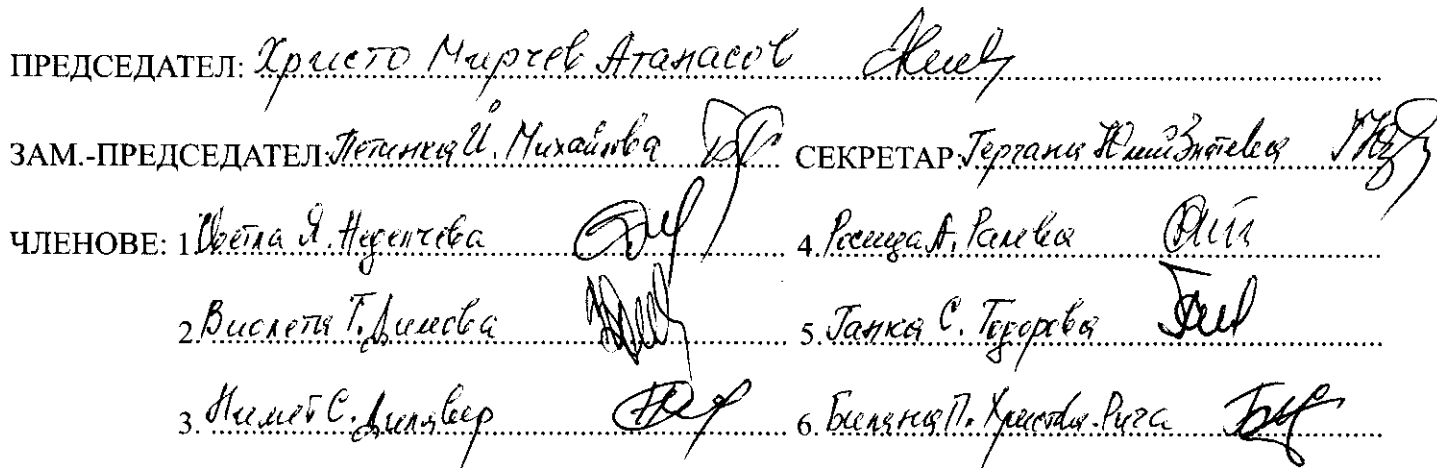 ПРЕДСЕДАТЕЛ: Христо Мирчев Атанасов
ЗАМ.-ПРЕДСЕДАТЕЛ: Петинка Й. Михайлова СЕКРЕТАР: Гергана
ЧЛЕНОВЕ: 1. Цветла Я. Неделчева 4. Росица А. Ралева
2. Виолета Т. Димова 5. Ганка С. Тодорова
3. Нимет С. Дилявер 6. Биляна П. Христова-Рига